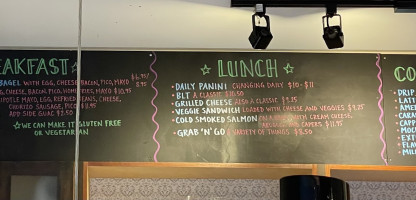 EAKFAST
BAGEL WITH EGG, CHEESE, BACON, PICO, MAYO $6.75/
EGG, CHEESE, BACON, PICO, HOME FRIES, MAYO $10.95
POTLE MAYO, EGG, REFRIED BEANS, CHEESE,
CHORIZO SAUSAGE, PICO
ADD SIDE GUAC $2.50
WE CAN MAKE IT GLUTEN FREE
OR VEGETARIAN
LUNCH
DAILY PANINI CHANGING DAILY $10-$11
BLT A CLASSIC $10.50
GRILLED CHEESE ALSO A CLASSIC
VEGGIE SANDWICH LOADED WITH CHEESE AND VEGGIES
COLD SMOKED SALMON WITH CREAM CHEESE,
AND CAPERS $11.95
GRAB 'N' GO A VARIETY OF THINGS $8.50
CO
DRIP
LAT
AME
CAR
CAPP
MOC
EXT
FLAV
MIL